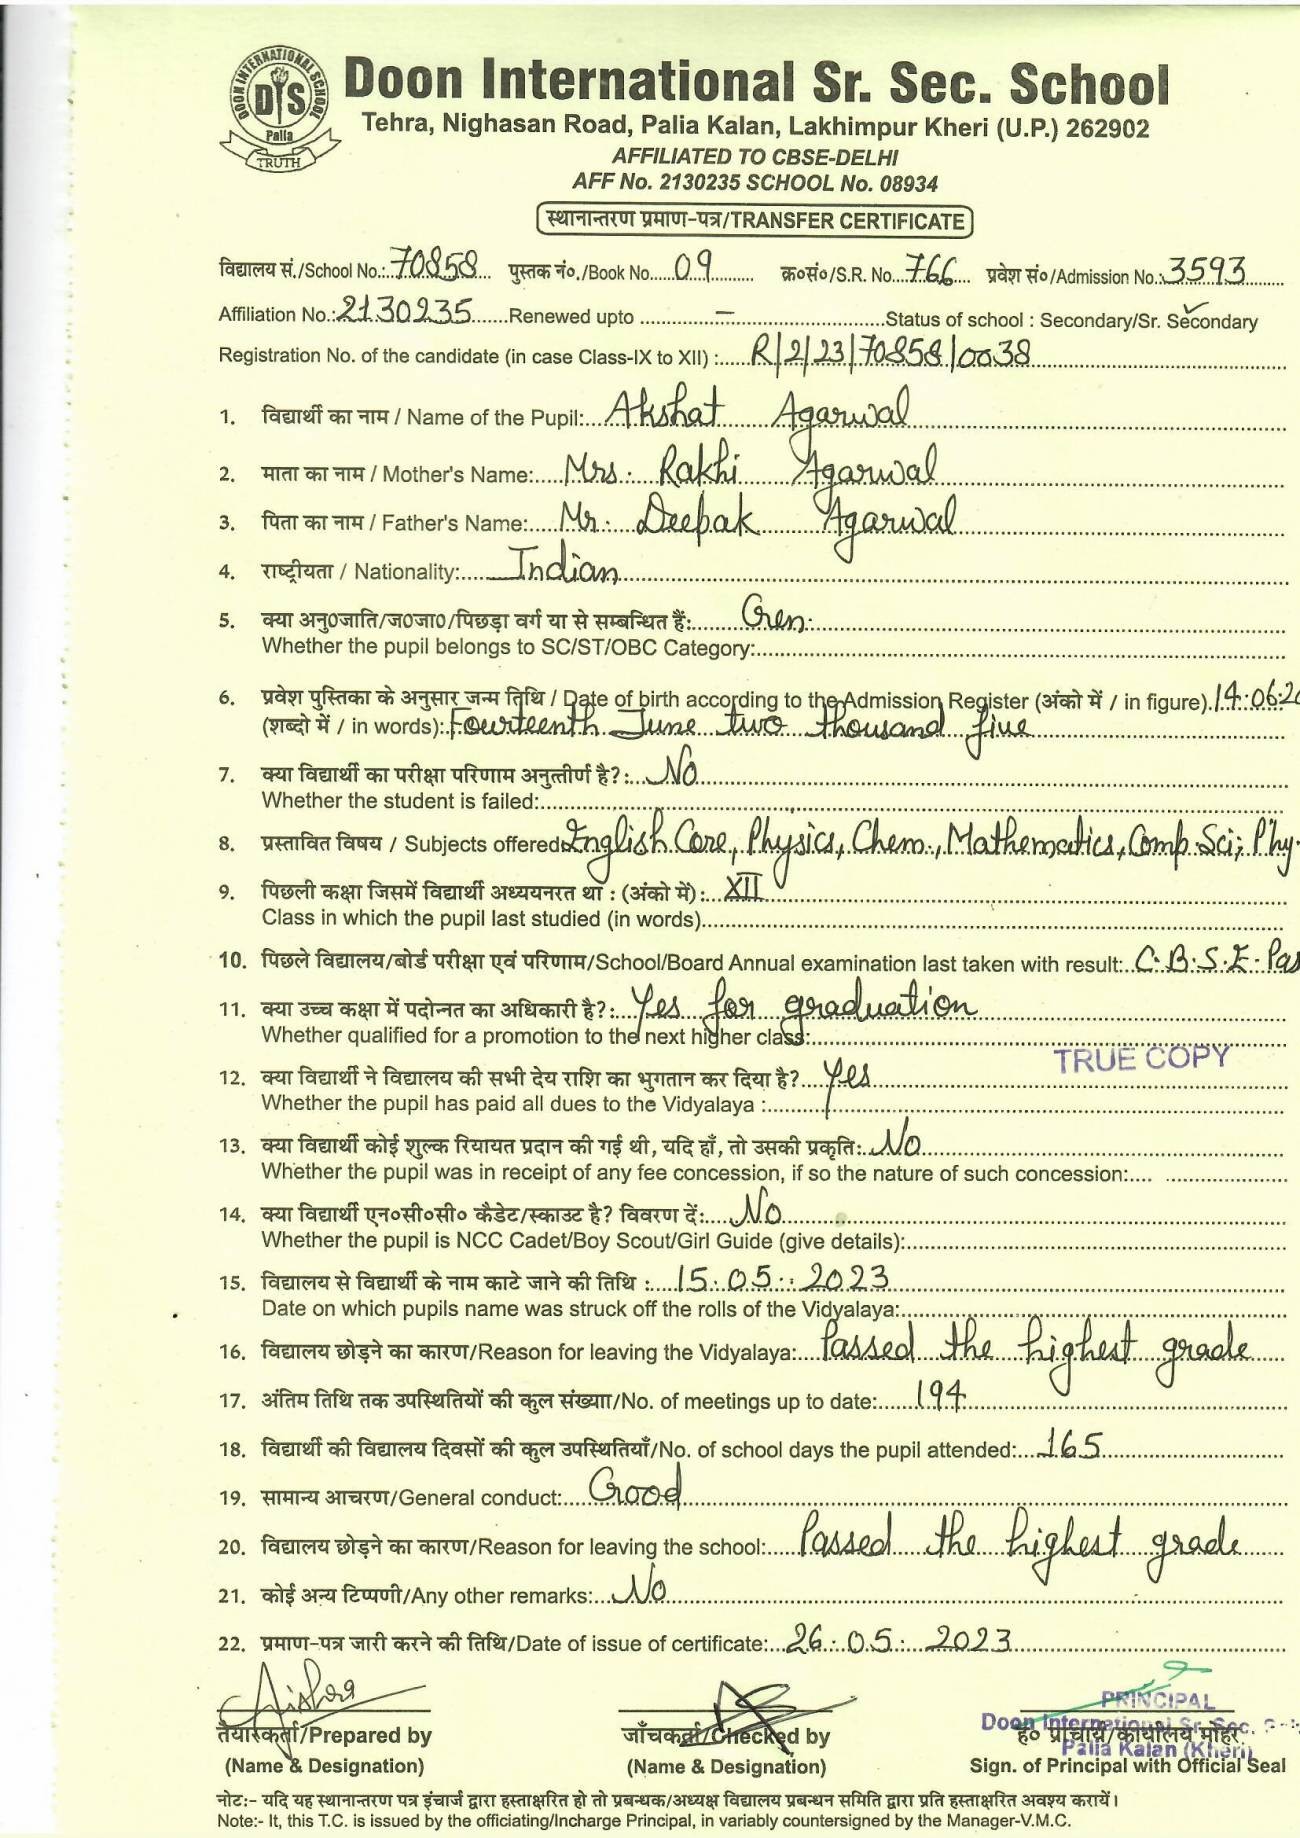 DOON INTERNATIONAL SCHOOL
DIS
Palia
TRUTH
Doon International Sr. Sec. School
Tehra, Nighasan Road, Palia Kalan, Lakhimpur Kheri (U.P.) 262902
AFFILIATED TO CBSE-DELHI
AFF No. 2130235 SCHOOL No. 08934
स्थानान्तरण प्रमाण-पत्र/TRANSFER CERTIFICATE
विद्यालय सं./School No.: 70858 पुस्तक नं०/Book No. 09 क्र०सं०/S.R. No. 766 प्रवेश सं०/Admission No.: 3593
Affiliation No.: 2130235 Renewed upto – Status of school : Secondary/Sr. Secondary
Registration No. of the candidate (in case Class-IX to XII) : R/2/23/70858/0038
1. विद्यार्थी का नाम / Name of the Pupil: Akshat Agarwal
2. माता का नाम / Mother's Name: Mrs. Rakhi Agarwal
3. पिता का नाम / Father's Name: Mr. Deepak Agarwal
4. राष्ट्रीयता / Nationality: Indian
5. क्या अनु0जाति/ज0जा0/पिछड़ा वर्ग या से सम्बन्धित हैं: Gen.
Whether the pupil belongs to SC/ST/OBC Category:
6. प्रवेश पुस्तिका के अनुसार जन्म तिथि / Date of birth according to the Admission Register (अंको में / in figure). 14.06.20
(शब्दो में / in words): Fourteenth June two thousand five
7. क्या विद्यार्थी का परीक्षा परिणाम अनुत्तीर्ण है?: No
Whether the student is failed:
8. प्रस्तावित विषय / Subjects offered: English Core, Physics, Chem., Mathematics, Comp. Sci; Phy.
9. पिछली कक्षा जिसमें विद्यार्थी अध्ययनरत था : (अंको में): XII
Class in which the pupil last studied (in words)
10. पिछले विद्यालय/बोर्ड परीक्षा एवं परिणाम/School/Board Annual examination last taken with result: C.B.S.E. Pas
11. क्या उच्च कक्षा में पदोन्नत का अधिकारी है?: Yes for graduation
Whether qualified for a promotion to the next higher class:
TRUE COPY
12. क्या विद्यार्थी ने विद्यालय की सभी देय राशि का भुगतान कर दिया है? Yes
Whether the pupil has paid all dues to the Vidyalaya :
13. क्या विद्यार्थी कोई शुल्क रियायत प्रदान की गई थी, यदि हाँ, तो उसकी प्रकृति: No
Whether the pupil was in receipt of any fee concession, if so the nature of such concession:
14. क्या विद्यार्थी एन०सी०सी० कैडेट/स्काउट है? विवरण दें: No
Whether the pupil is NCC Cadet/Boy Scout/Girl Guide (give details):
15. विद्यालय से विद्यार्थी के नाम काटे जाने की तिथि : 15.05.2023
Date on which pupils name was struck off the rolls of the Vidyalaya:
16. विद्यालय छोड़ने का कारण/Reason for leaving the Vidyalaya: Passed the highest grade
17. अंतिम तिथि तक उपस्थितियों की कुल संख्याा/No. of meetings up to date: 194
18. विद्यार्थी की विद्यालय दिवसों की कुल उपस्थितियाँ/No. of school days the pupil attended: 165
19. सामान्य आचरण/General conduct: Good
20. विद्यालय छोड़ने का कारण/Reason for leaving the school: Passed the highest grade
21. कोई अन्य टिप्पणी/Any other remarks: No
22. प्रमाण-पत्र जारी करने की तिथि/Date of issue of certificate: 26.05.2023
PRINCIPAL
Doon International Sr. Sec.
Palia Kalan (Kheri)
तैयारकर्ता/Prepared by जाँचकर्ता/Checked by ह० प्राचार्य/कार्यालय मोहर
(Name & Designation) (Name & Designation) Sign. of Principal with Official Seal
नोटः- यदि यह स्थानान्तरण पत्र इंचार्ज द्वारा हस्ताक्षरित हो तो प्रबन्धक/अध्यक्ष विद्यालय प्रबन्धन समिति द्वारा प्रति हस्ताक्षरित अवश्य करायें।
Note:- It, this T.C. is issued by the officiating/Incharge Principal, in variably countersigned by the Manager-V.M.C.